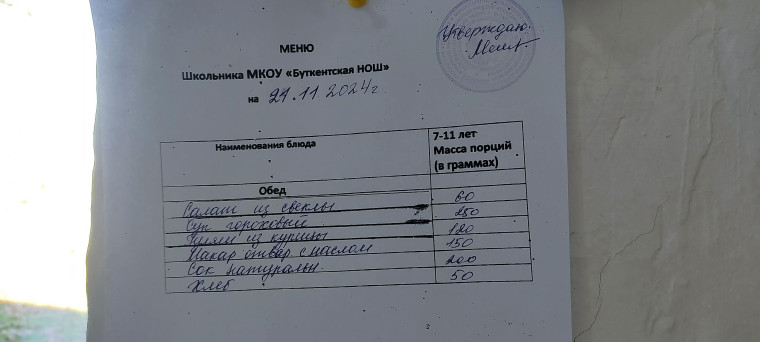 Утверждаю
МЕНЮ
Школьника МКОУ «Буткентская НОШ»
на 21.11 2024г
Наименования блюда 7-11 лет
Масса порций
(в граммах)
Обед
Салат из свеклы 60
Суп гороховый 250
из курицы 120
Макар отвар с маслом 150
Сок натуральн 200
Хлеб 50